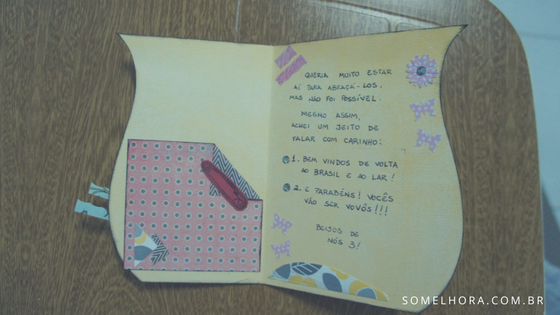 QUERIA MUITO ESTAR
AÍ PARA ABRAÇÁ-LOS,
MAS NÃO FOI POSSÍVEL.
MESMO ASSIM,
ACHEI UM JEITO DE
FALAR COM CARINHO:
1. BEM VINDOS DE VOLTA
AO BRASIL E AO LAR!
2. E PARABÉNS! VOCÊS
VÃO SER VOVÓS!!!
BEIJOS DE
NÓS 3!
SOMELHORA.COM.BR